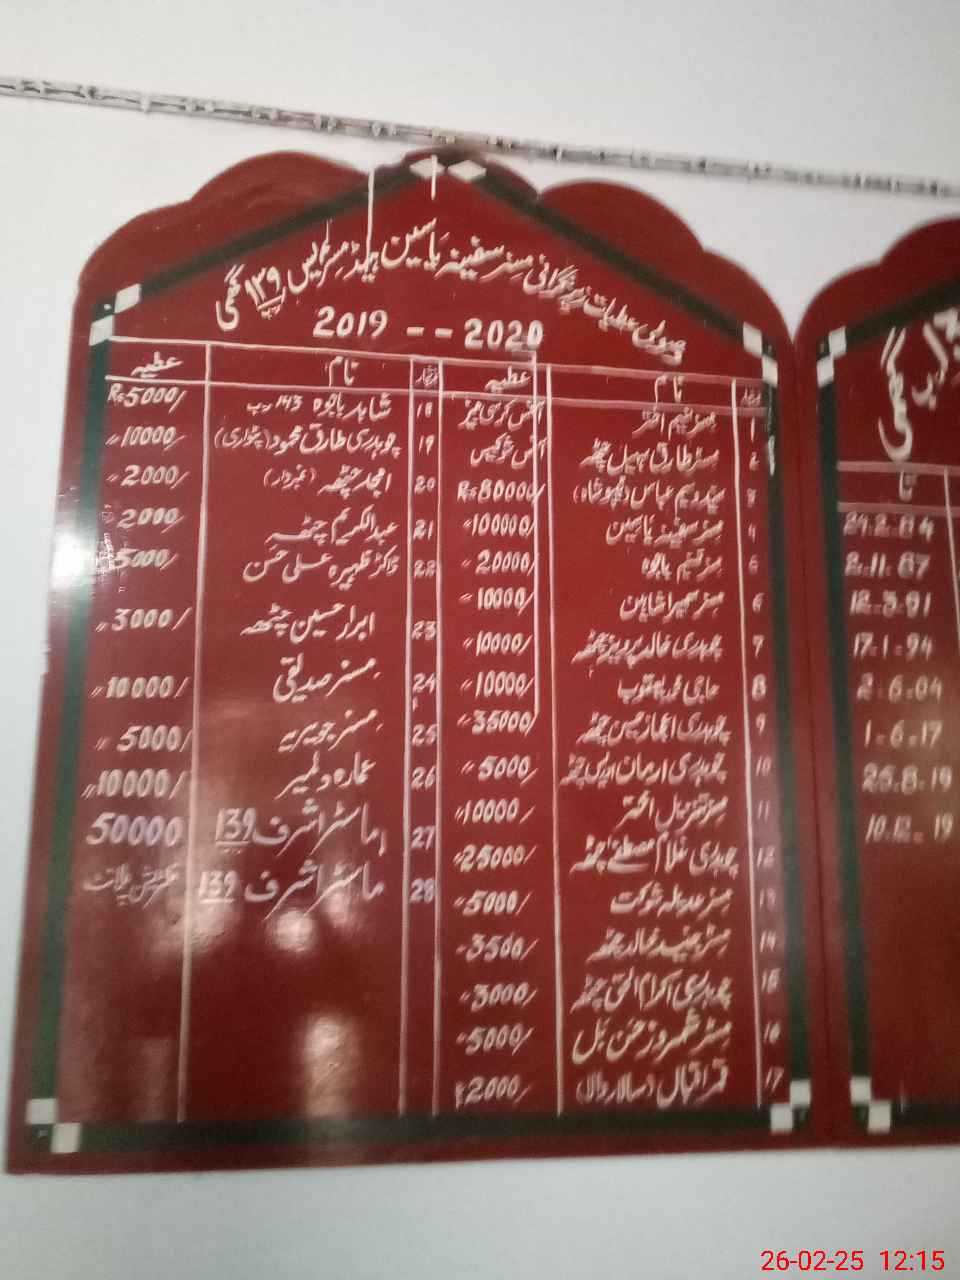 بیرونی عطیات زیرنگرانی مسز سفینہ یاسین ہیڈ مسٹریس ۱۳۹ گھمی
2019 -- 2020
نمبرشمار نام عطیہ
1 مسز نسیم اختر آفس کرسی میز
2 مسٹر طارق سہیل چٹھہ آفس شوکیس
3 سید وسیم عباس (ٹیپو شاہ) Rs 80000/
4 مسز سفینہ یاسین 〃 100000/
5 مسز تسنیم باجوہ 〃 20000/
6 مسز سمیرا شاہین 〃 10000/
7 چوہدری خالد پرویز چٹھہ 〃 10000/
8 حاجی محمد یعقوب 〃 10000/
9 چوہدری اعجاز حسین چٹھہ 〃 35000/
10 چوہدری ارمان ادریس چٹھہ 〃 5000/
11 مسز تنزیل اختر 〃 10000/
12 چوہدری غلام مصطفےٰ چٹھہ 〃 25000/
13 مسز عدیلہ شوکت 〃 5000/
14 مسٹر جنید خالد چٹھہ 〃 3500/
15 چوہدری اکرام الحق چٹھہ 〃 3000/
16 مسٹر شمروز حسن بل 〃 5000/
17 قمر اقبال (سالار والا) 〃 2000/
نمبرشمار نام عطیہ
18 شاہد باجوہ 143 ر ب Rs 5000/
19 چوہدری طارق محمود (پٹواری) 〃 10000/
20 امجد چٹھہ (نمبردار) 〃 2000/
21 عبدالکریم چٹھہ 〃 2000/
22 ڈاکٹر ظہیرہ علی حسن 〃 5000/
23 ابرار حسین چٹھہ 〃 3000/
24 مسز صدیقی 〃 10000/
25 مسز جویریہ 〃 5000/
26 عمارہ دلمیر 〃 10000/
27 ماسٹر اشرف 139 50000
28 ماسٹر اشرف 139
نا
24.2.84
2.11.87
12.3.91
17.1.94
2.6.04
1.6.17
26.8.19
10.12.19
26-02-25 12:15